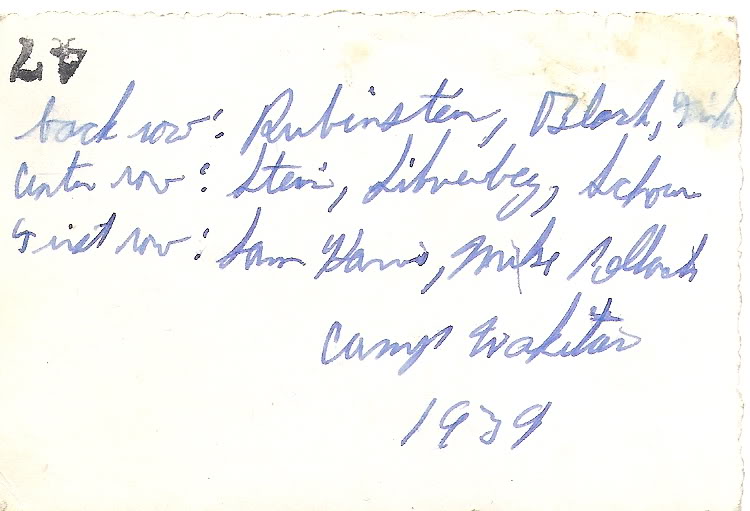 47
back row: Rubinstein, Block,
Center row: Stein, Silverberg, Schour
First row: Sam Harris, Mike Pollock
Camp Wakitan
1939